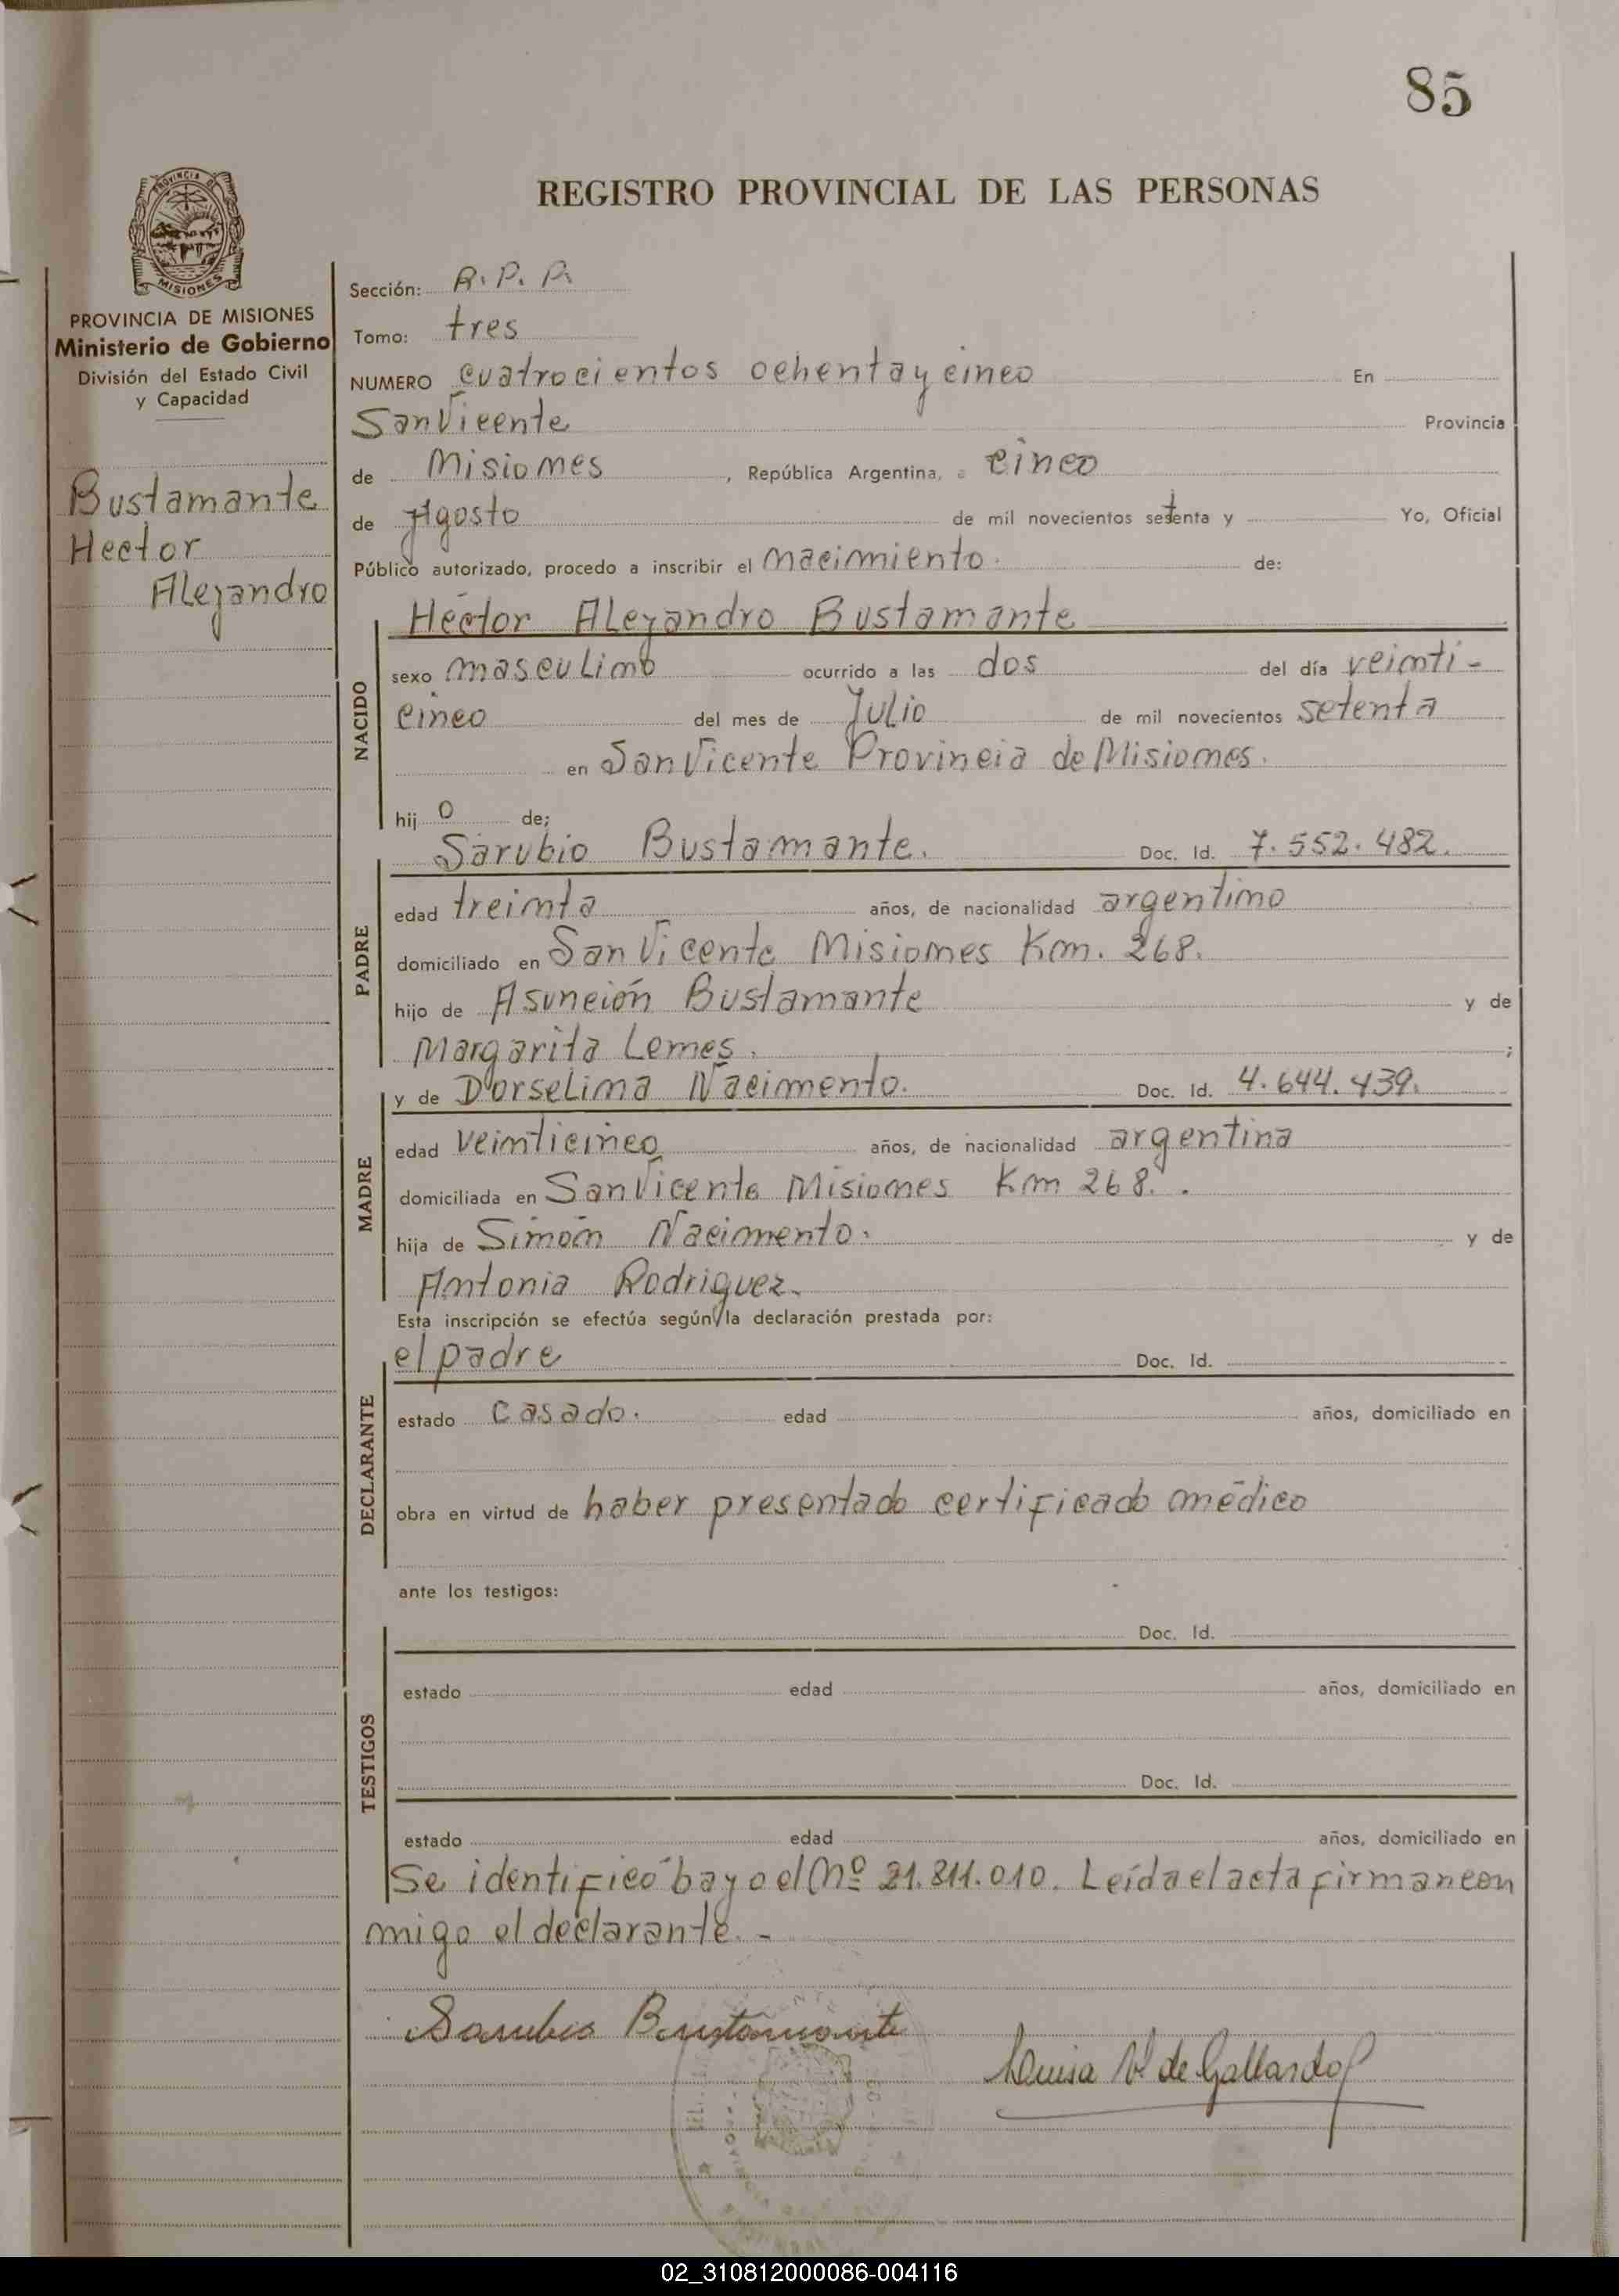 85
REGISTRO PROVINCIAL DE LAS PERSONAS
PROVINCIA DE MISIONES
Ministerio de Gobierno
División del Estado Civil
y Capacidad
Bustamante
Hector
Alejandro
Sección: R. P. P.
Tomo: tres
NUMERO cuatrocientos ochenta y cinco En
San Vicente Provincia
de Misiones, República Argentina, a cinco
de Agosto de mil novecientos setenta y Yo, Oficial
Público autorizado, procedo a inscribir el nacimiento. de:
NACIDO
Héctor Alejandro Bustamante
sexo masculino ocurrido a las dos del día veinti-
cinco del mes de Julio de mil novecientos setenta
en San Vicente Provincia de Misiones.
hij o de;
PADRE
Sarubio Bustamante. Doc. Id. 7.552.482.
edad treinta años, de nacionalidad argentino
domiciliado en San Vicente Misiones Km. 268.
hijo de Asunción Bustamante y de
Margarita Lemes. ;
MADRE
y de Dorselina Nacimento. Doc. Id. 4.644.439.
edad veinticinco años, de nacionalidad argentina
domiciliada en San Vicente Misiones Km 268..
hija de Simón Nacimento. y de
Antonia Rodriguez.
Esta inscripción se efectúa según la declaración prestada por:
DECLARANTE
el padre Doc. Id.
estado casado. edad años, domiciliado en
obra en virtud de haber presentado certificado médico
ante los testigos:
TESTIGOS
Doc. Id.
estado edad años, domiciliado en
Doc. Id.
estado edad años, domiciliado en
Se identificó bayo el Nº 21.811.010. Leída el acta firman con
migo el declarante. -
Sarubio Bustamante
Luisa V. de Gallardo
02_310812000086-004116